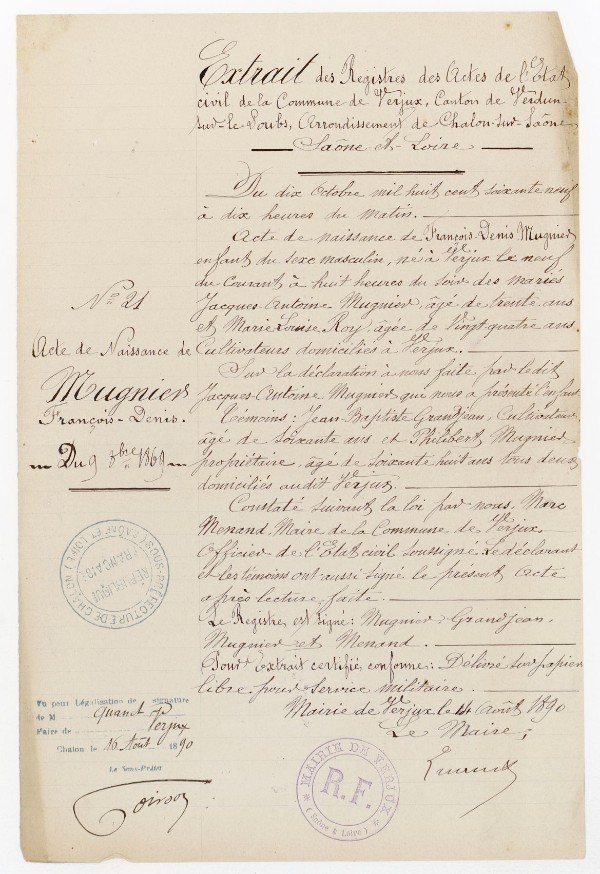 Extrait des Registres des Actes de l'Etat
civil de la Commune de Verjux, Canton de Verdun-
sur-le-Doubs, Arrondissement de Chalon-sur-Saône
Saône-et-Loire
Du dix Octobre mil huit cent soixante neuf
à dix heures du matin.
Acte de naissance de François-Denis Mugnier
enfant du sexe masculin, né à Verjux le neuf
du Courant à huit heures du soir des mariés
Jacques-Antoine Mugnier, âgé de trente ans
et Marie Louise Roy, âgée de Vingt-quatre ans.
Cultivateurs domiciliés à Verjux.
Sur la déclaration à nous faite par ledit
Jacques-Antoine Mugnier qui nous a présenté l'enfant.
Témoins: Jean-Baptiste Grandjean, Cultivateur,
âgé de soixante ans et Philibert Mugnier
propriétaire âgé de soixante huit ans tous deux
domiciliés audit Verjux.
Constaté suivant la loi par nous, Marc
Menand, Maire de la Commune de Verjux
Officier de l'Etat civil soussigné. Le déclarant
et les témoins ont aussi signé le présent Acte
après lecture faite.
Le Registre est signé: Mugnier, Grandjean,
Mugnier et Menand.
Pour Extrait certifié conforme: Délivré sur papier
libre pour service militaire.
Mairie de Verjux le 14 Août 1890
Le Maire,
No 21
Acte de Naissance de
Mugnier
François-Denis.
Du 9 8bre 1869
SOUS-PRÉFECTURE DE CHALON (SAONE ET LOIRE)
RÉPUBLIQUE
FRANÇAISE
Vu pour Légalisation de signature
de M
Maire de Verjux
Chalon le 16 Août 1890
Le Sous-Préfet
MAIRIE DE VERJUX
R.F.
(Saône & Loire)